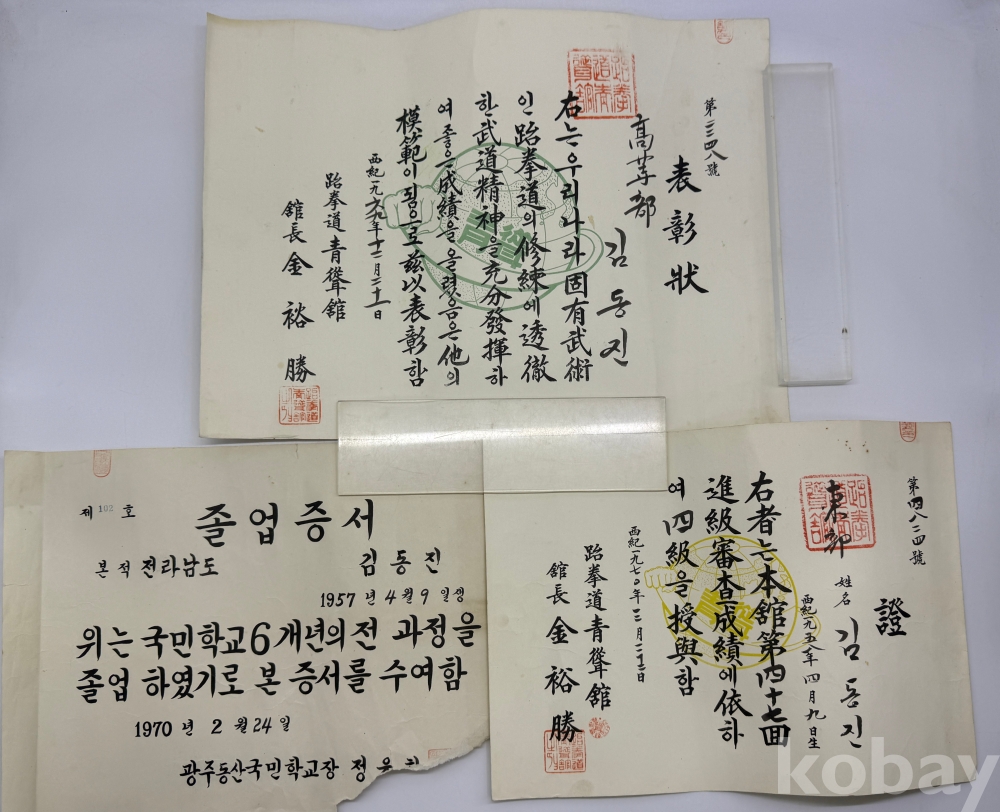 第三三四八號
表彰狀
高等部
김동진
右는우리나라固有武術
인跆拳道의修練에透徹
한武道精神을充分發揮하
여좋은成績을올렸음은他의
模範이됨으로玆以表彰함
西紀一九六九年十二月二十一日
跆拳道靑聳館
館長金裕勝
제 102 호
졸업증서
본적 전라남도
김동진
1957년 4월 9일생
위는 국민학교6개년의전 과정을
졸업 하였기로 본 증서를 수여함
1970년 2월24일
광주동산국민학교장 정
第四八二四號
證
東部
姓名 김동진
西紀一九五八年四月九日生
右者는本舘第四十七回
進級審査成績에依하
여四級을授與함
西紀一九七〇年三月二十二日
跆拳道靑聳舘
舘長金裕勝
kobay